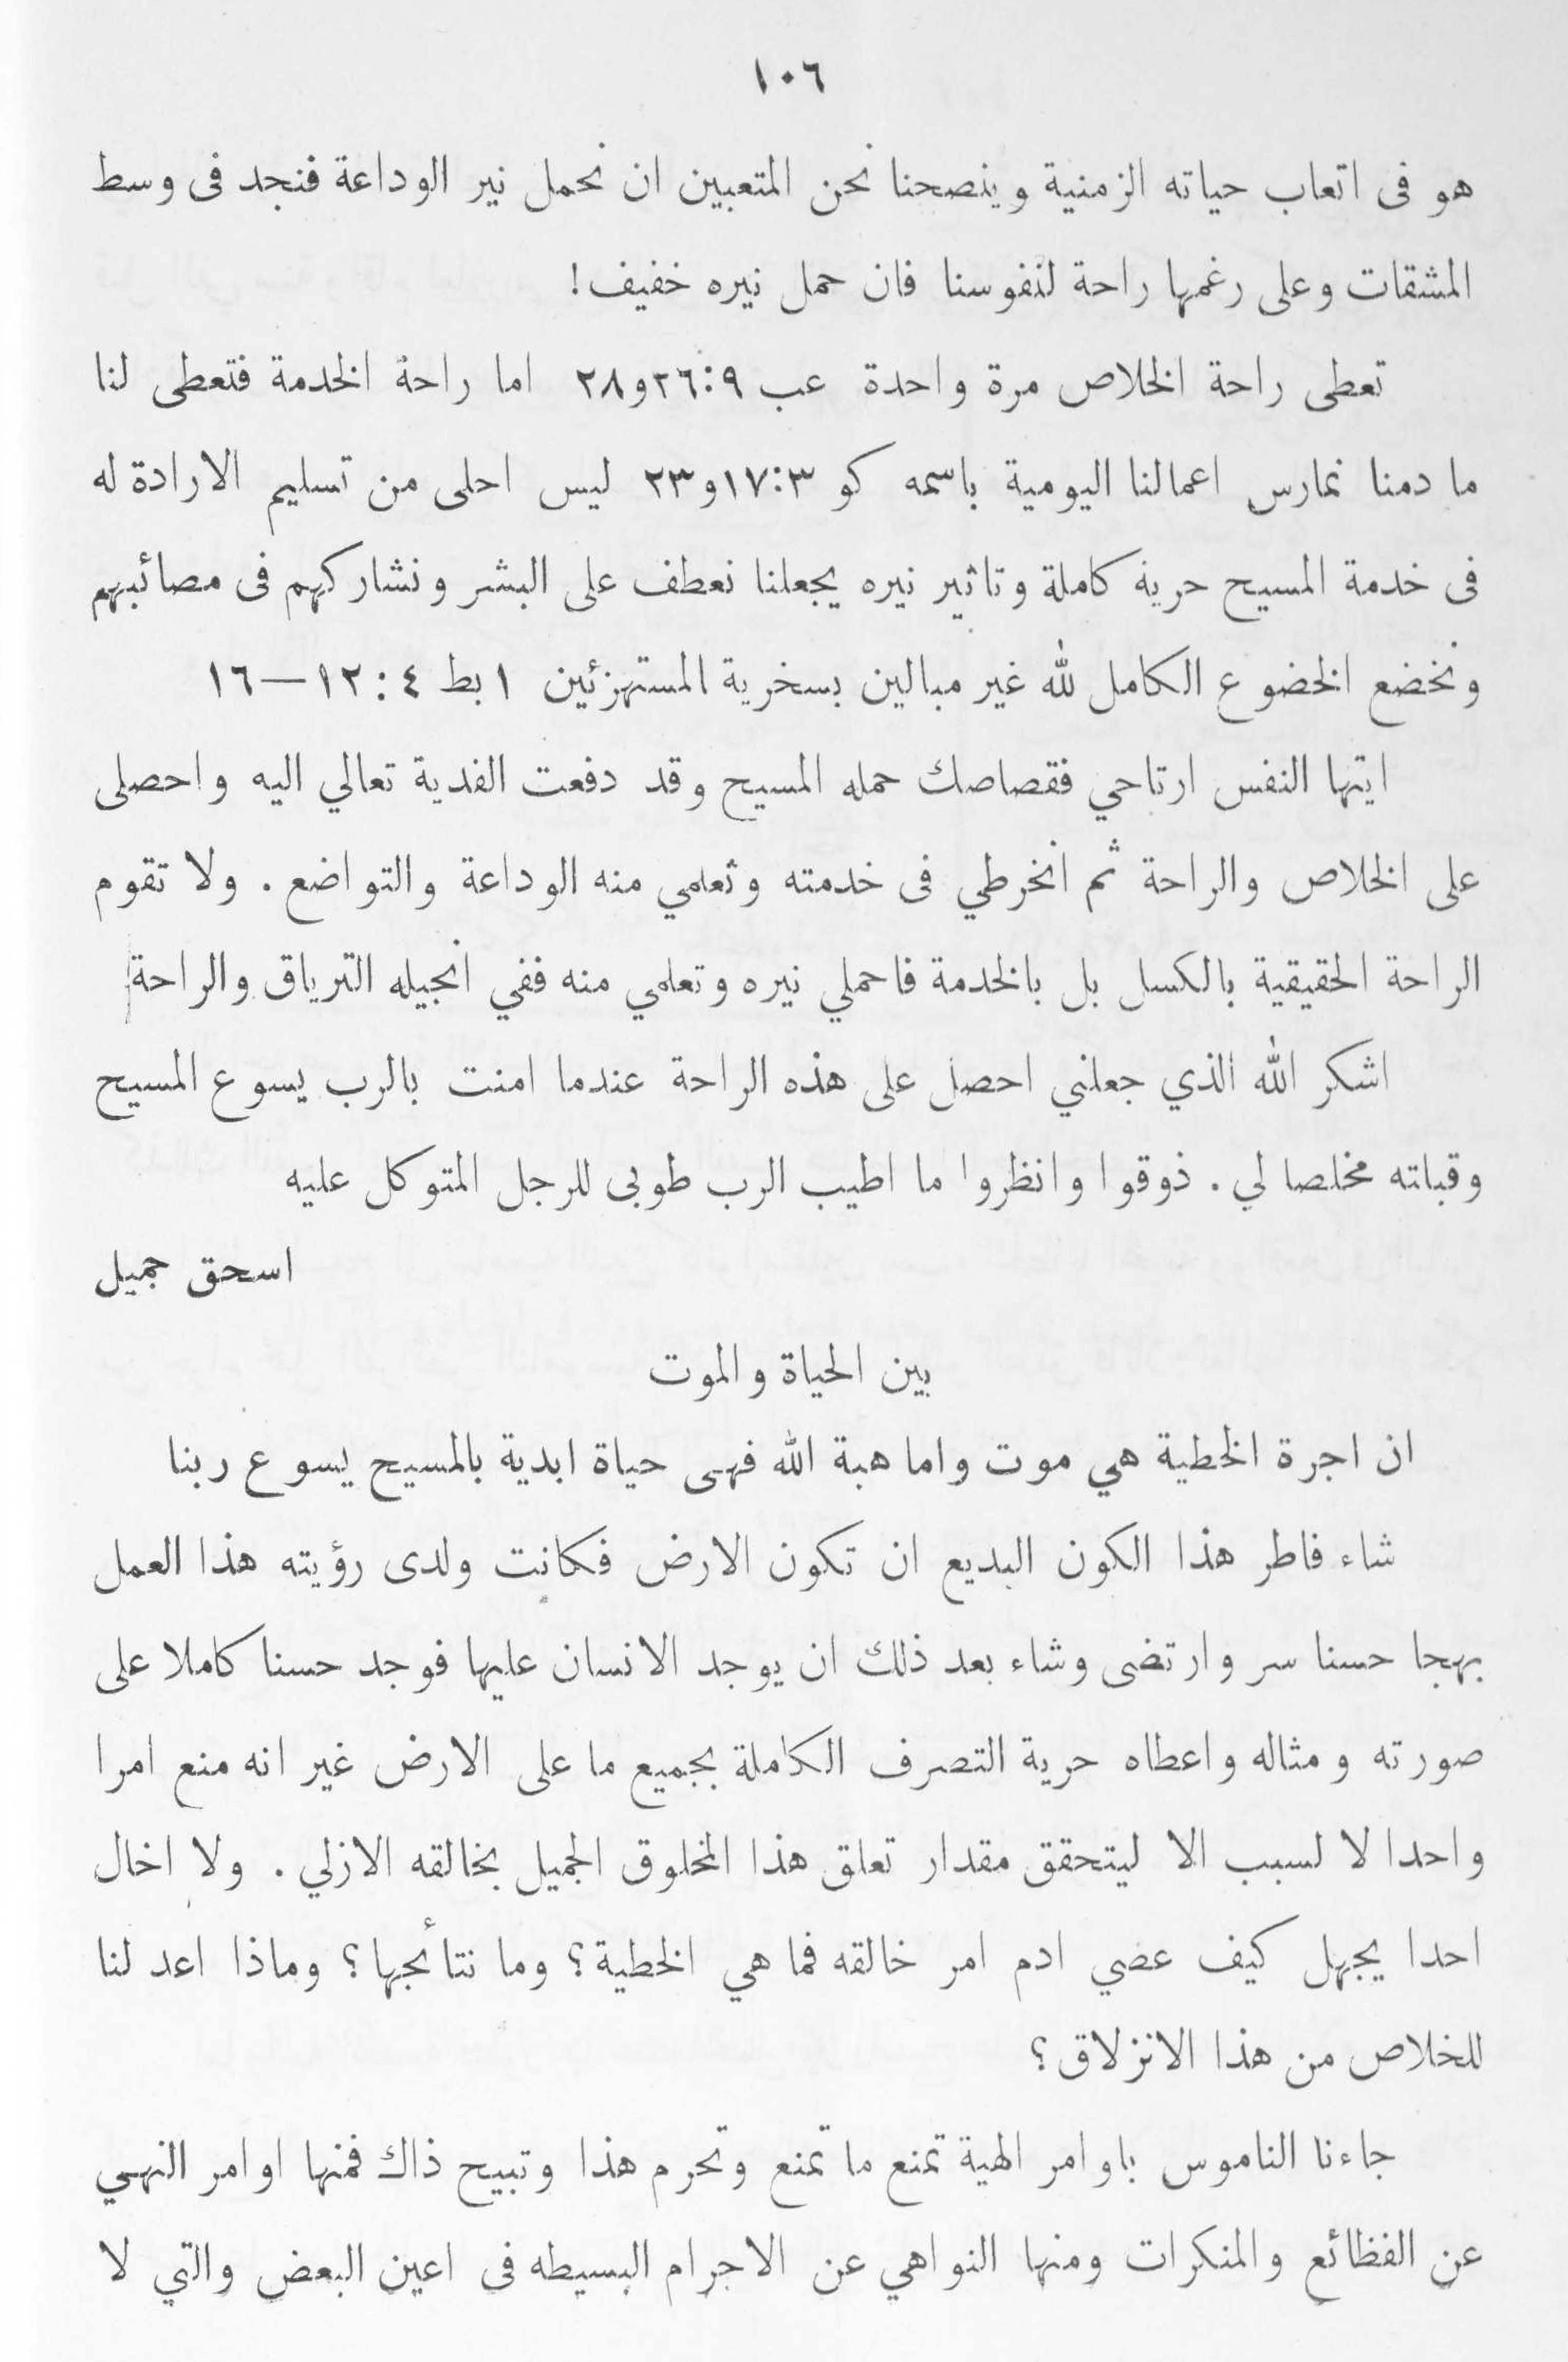 ١٠٦
هو فى اتعاب حياته الزمنية وينصحنا نحن المتعبين ان نحمل نير الوداعة فنجد فى وسط
المشقات وعلى رغمها راحة لنفوسنا فان حمل نيره خفيف!
تعطى راحة الخلاص مرة واحدة عب ٩:٢٦و٢٨ اما راحة الخدمة فتعطى لنا
ما دمنا نمارس اعمالنا اليومية باسمه كو ٣:١٧و٢٣ ليس احلى من تسليم الارادة له
فى خدمة المسيح حرية كاملة وتاثير نيره يجعلنا نعطف على البشر ونشاركهم فى مصائبهم
ونخضع الخضوع الكامل لله غير مبالين بسخرية المستهزئين ١ بط ٤:١٢—١٦
ايتها النفس ارتاحي فقصاصك حمله المسيح وقد دفعت الفدية تعالي اليه واحصلى
على الخلاص والراحة ثم انخرطي فى خدمته وتعلمي منه الوداعة والتواضع. ولا تقوم
الراحة الحقيقية بالكسل بل بالخدمة فاحملي نيره وتعلمي منه ففي انجيله الترياق والراحة
اشكر الله الذي جعلني احصل على هذه الراحة عندما امنت بالرب يسوع المسيح
وقباته مخلصا لي. ذوقوا وانظروا ما اطيب الرب طوبى للرجل المتوكل عليه
اسحق جميل
بين الحياة والموت
ان اجرة الخطية هي موت واما هبة الله فهى حياة ابدية بالمسيح يسوع ربنا
شاء فاطر هذا الكون البديع ان تكون الارض فكانت ولدى رؤيته هذا العمل
بهجا حسنا سر وارتضى وشاء بعد ذلك ان يوجد الانسان عليها فوجد حسنا كاملا على
صورته ومثاله واعطاه حرية التصرف الكاملة بجميع ما على الارض غير انه منع امرا
واحدا لا لسبب الا ليتحقق مقدار تعلق هذا المخلوق الجميل بخالقه الازلي. ولا اخال
احدا يجهل كيف عصي ادم امر خالقه فما هي الخطية؟ وما نتائجها؟ وماذا اعد لنا
للخلاص من هذا الانزلاق؟
جاءنا الناموس باوامر الهية تمنع ما تمنع وتحرم هذا وتبيح ذاك فمنها اوامر النهي
عن الفظائع والمنكرات ومنها النواهي عن الاجرام البسيطه فى اعين البعض والتي لا